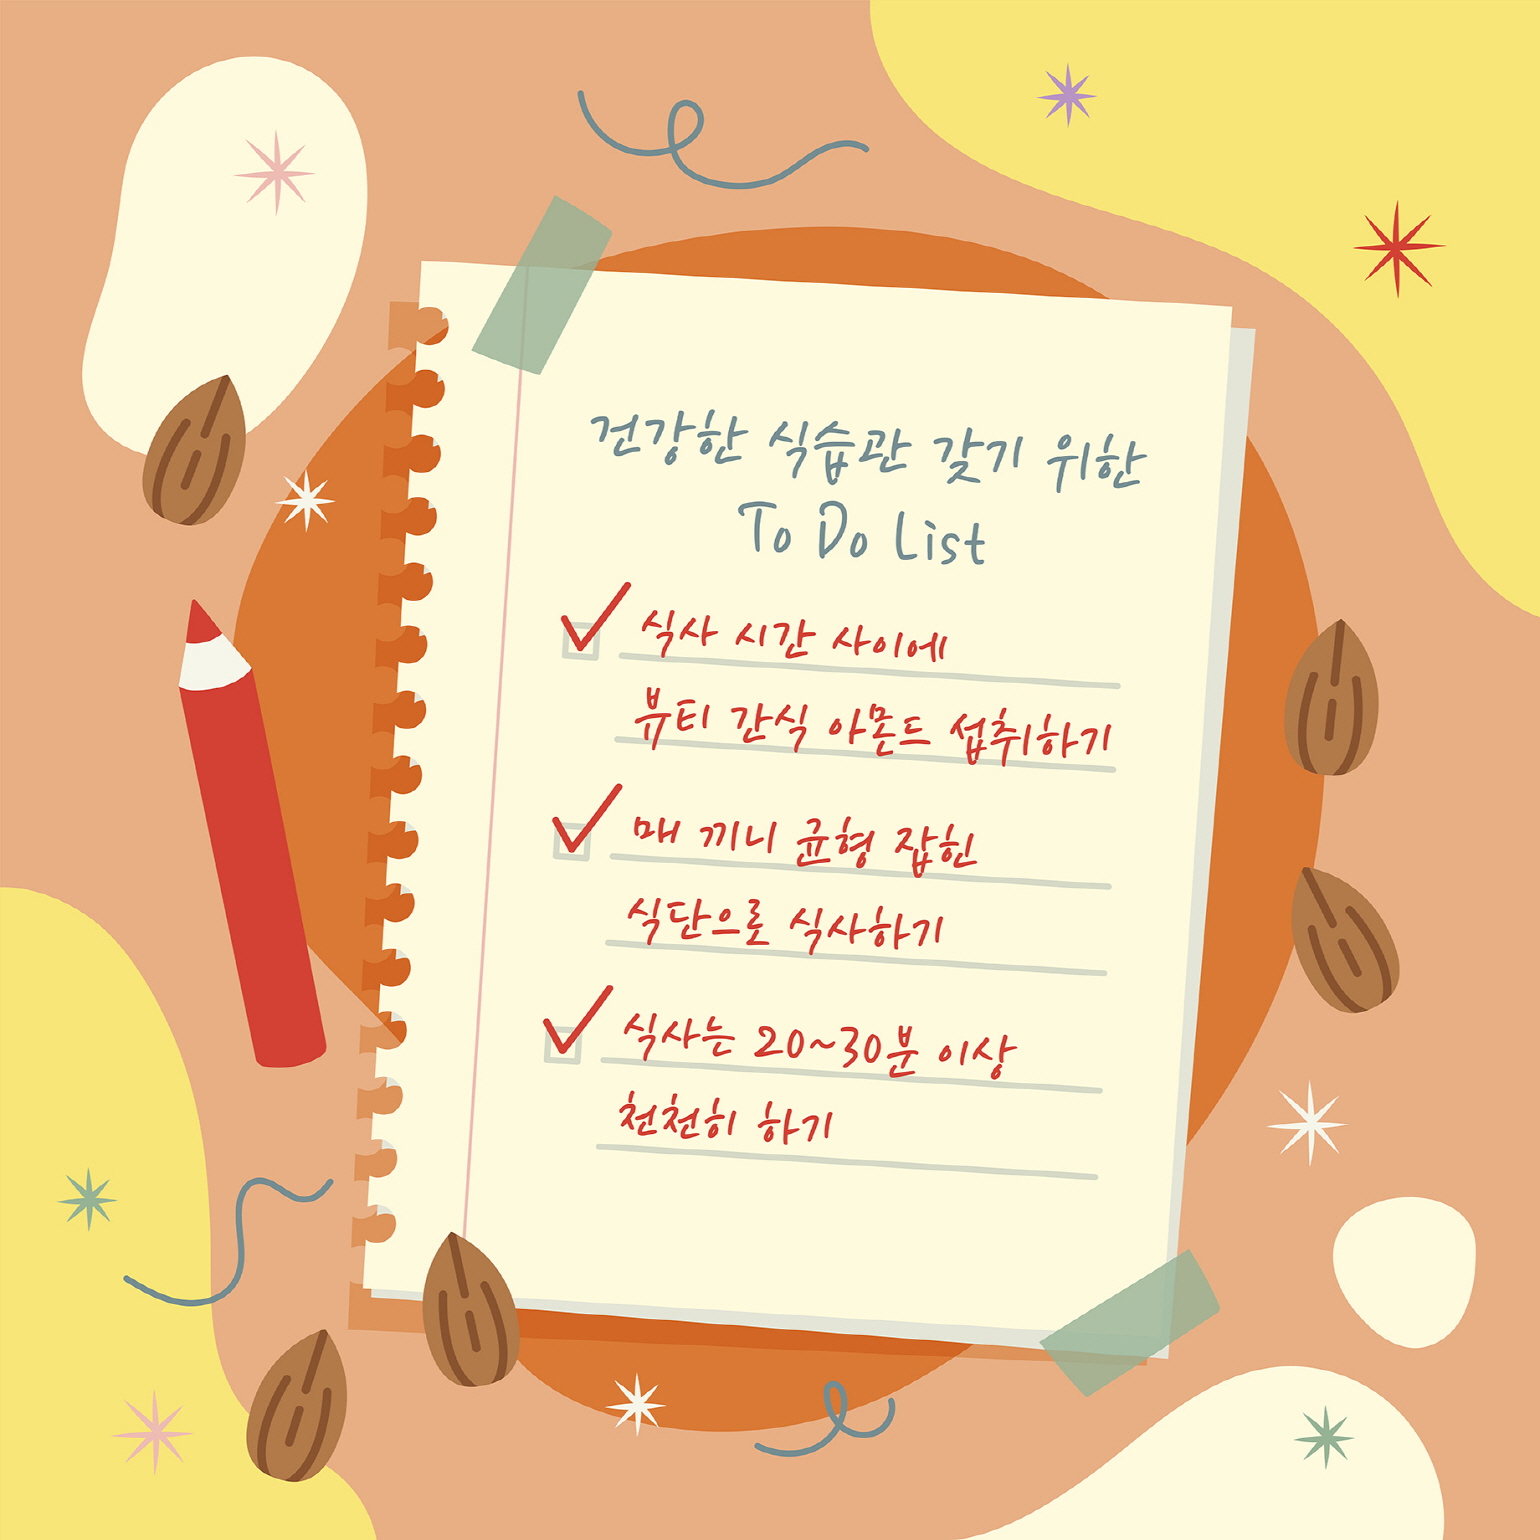 건강한 식습관 갖기 위한
To Do List
식사 시간 사이에
뷰티 간식 아몬드 섭취하기
매 끼니 균형 잡힌
식단으로 식사하기
식사는 20~30분 이상
천천히 하기